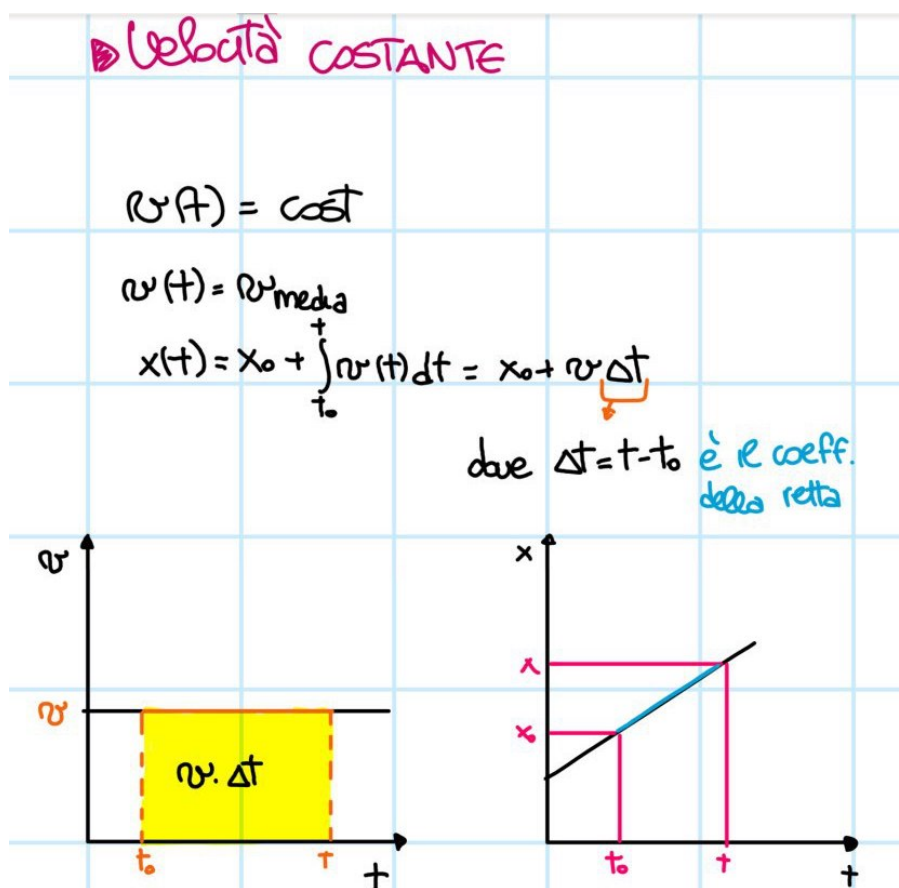 Velocità COSTANTE
v(t) = cost
v(t) = v media
x(t) = x₀ + ∫ₜ₀ᵗ v(t) dt = x₀ + v Δt
dove Δt = t - t₀ è il coeff.
della retta
v
v
v. Δt
t₀
t
t
x
x
x₀
t₀
t
t